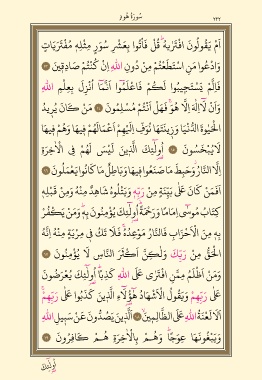 سُورَةُ هُودٍ ٢٢٢
اَمْ يَقُولُونَ افْتَرٰيهُ قُلْ فَأْتُوا بِعَشْرِ سُوَرٍ مِثْلِهِ مُفْتَرَيَاتٍ
وَادْعُوا مَنِ اسْتَطَعْتُمْ مِنْ دُونِ اللهِ اِنْ كُنْتُمْ صَادِقِينَ ١٣
فَاِلَّمْ يَسْتَجِيبُوا لَكُمْ فَاعْلَمُوا اَنَّمَا اُنْزِلَ بِعِلْمِ اللهِ
وَاَنْ لَا اِلٰهَ اِلَّا هُوَ فَهَلْ اَنْتُمْ مُسْلِمُونَ ١٤ مَنْ كَانَ يُرِيدُ
الْحَيٰوةَ الدُّنْيَا وَزِينَتَهَا نُوَفِّ اِلَيْهِمْ اَعْمَالَهُمْ فِيهَا وَهُمْ فِيهَا
لَا يُبْخَسُونَ ١٥ اُولٰئِكَ الَّذِينَ لَيْسَ لَهُمْ فِي الْاٰخِرَةِ
اِلَّا النَّارُ وَحَبِطَ مَا صَنَعُوا فِيهَا وَبَاطِلٌ مَا كَانُوا يَعْمَلُونَ ١٦
اَفَمَنْ كَانَ عَلٰى بَيِّنَةٍ مِنْ رَبِّهِ وَيَتْلُوهُ شَاهِدٌ مِنْهُ وَمِنْ قَبْلِهِ
كِتَابُ مُوسٰى اِمَامًا وَرَحْمَةً اُولٰئِكَ يُؤْمِنُونَ بِهِ وَمَنْ يَكْفُرْ
بِهِ مِنَ الْاَحْزَابِ فَالنَّارُ مَوْعِدُهُ فَلَا تَكُ فِي مِرْيَةٍ مِنْهُ اِنَّهُ
الْحَقُّ مِنْ رَبِّكَ وَلٰكِنَّ اَكْثَرَ النَّاسِ لَا يُؤْمِنُونَ ١٧
وَمَنْ اَظْلَمُ مِمَّنِ افْتَرٰى عَلَى اللهِ كَذِبًا اُولٰئِكَ يُعْرَضُونَ
عَلٰى رَبِّهِمْ وَيَقُولُ الْاَشْهَادُ هٰؤُلَاءِ الَّذِينَ كَذَبُوا عَلٰى رَبِّهِمْ
اَلَا لَعْنَةُ اللهِ عَلَى الظَّالِمِينَ ١٨ اَلَّذِينَ يَصُدُّونَ عَنْ سَبِيلِ اللهِ
وَيَبْغُونَهَا عِوَجًا وَهُمْ بِالْاٰخِرَةِ هُمْ كَافِرُونَ ١٩
اُولٰئِكَ